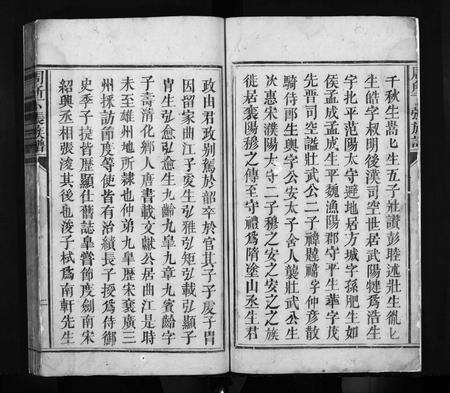 千秋生嵩匕生五子壯讚彭睦述壯生胤匕
生皓字叔明後漢司空世居武陽𤘽為浩生
字扎平范陽太守避地居方城字孫肥生如
侯孟成孟成生平魏漁陽郡守平生華字茂
先晋司空諡壯武公二子禕韙禕字仲彦散
騎侍郎生輿字公安太子舍人襲壯武公生
次惠宋濮陽太守二子穆之安之安之之族
徙居襄陽穆之傳至守禮為隋塗山丞生君
政由君政别駕於韶卒於官其子子虔子胄
因留家曲江子虔生弘雅弘矩弘載弘顯子
胄生弘愈弘愈生九齡九臯九章九賓齡字
子壽清化鄉人唐書載文獻公居曲江是時
未至雄州地所隸也仲弟九臯歷宋襄廣三
州採訪節度等使皆有治績長子授為侍御
史季子捷皆歷顯仕舊誌臯嘗節度劍南宋
紹興丞相張浚其後也浚子栻為南軒先生